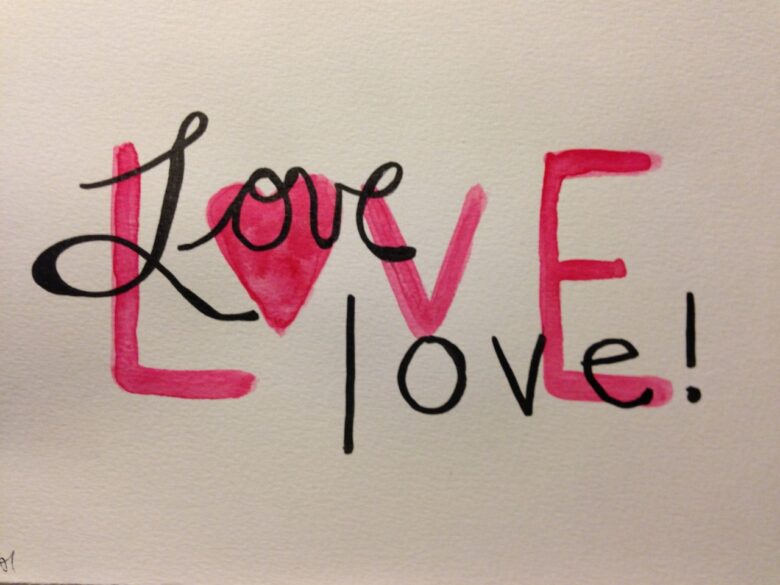 Love
LOVE
love!